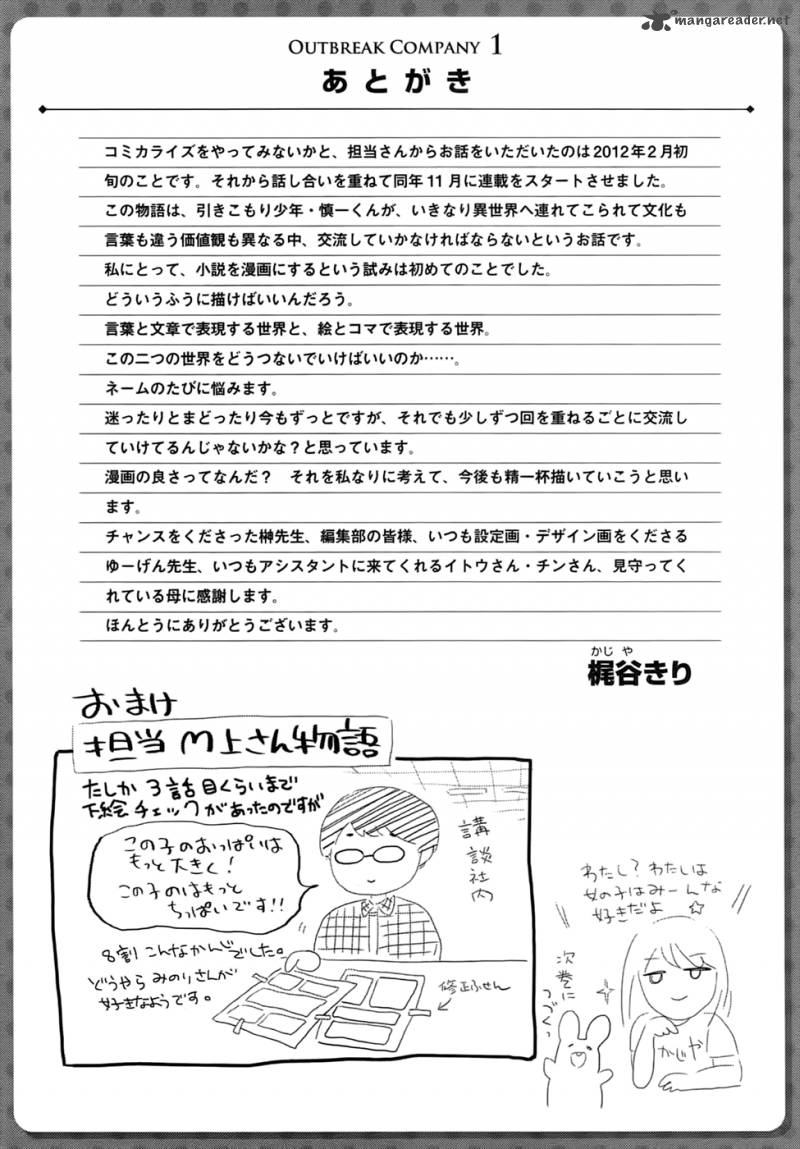 mangareader.net
OUTBREAK COMPANY 1
あとがき
コミカライズをやってみないかと、担当さんからお話をいただいたのは2012年2月初
旬のことです。それから話し合いを重ねて同年11月に連載をスタートさせました。
この物語は、引きこもり少年・慎一くんが、いきなり異世界へ連れてこられて文化も
言葉も違う価値観も異なる中、交流していかなければならないというお話です。
私にとって、小説を漫画にするという試みは初めてのことでした。
どういうふうに描けばいいんだろう。
言葉と文章で表現する世界と、絵とコマで表現する世界。
この二つの世界をどうつないでいけばいいのか……。
ネームのたびに悩みます。
迷ったりとまどったり今もずっとですが、それでも少しずつ回を重ねるごとに交流し
ていけてるんじゃないかな？と思っています。
漫画の良さってなんだ？　それを私なりに考えて、今後も精一杯描いていこうと思い
ます。
チャンスをくださった榊先生、編集部の皆様、いつも設定画・デザイン画をくださる
ゆーげん先生、いつもアシスタントに来てくれるイトウさん・チンさん、見守ってく
れている母に感謝します。
ほんとうにありがとうございます。
かじや
梶谷きり
おまけ
担当M上さん物語
たしか3話目くらいまで
下絵チェックがあったのですが
この子のおっぱいは
もっと大きく！
この子のはもっと
ちっぱいです!!
講談社内
8割こんなかんじでした。
どうやらみのりさんが
好きなようです。
修正ふせん
わたし？わたしは
女の子はみーんな
好きだよ☆
次巻に
つづくっ
かじや